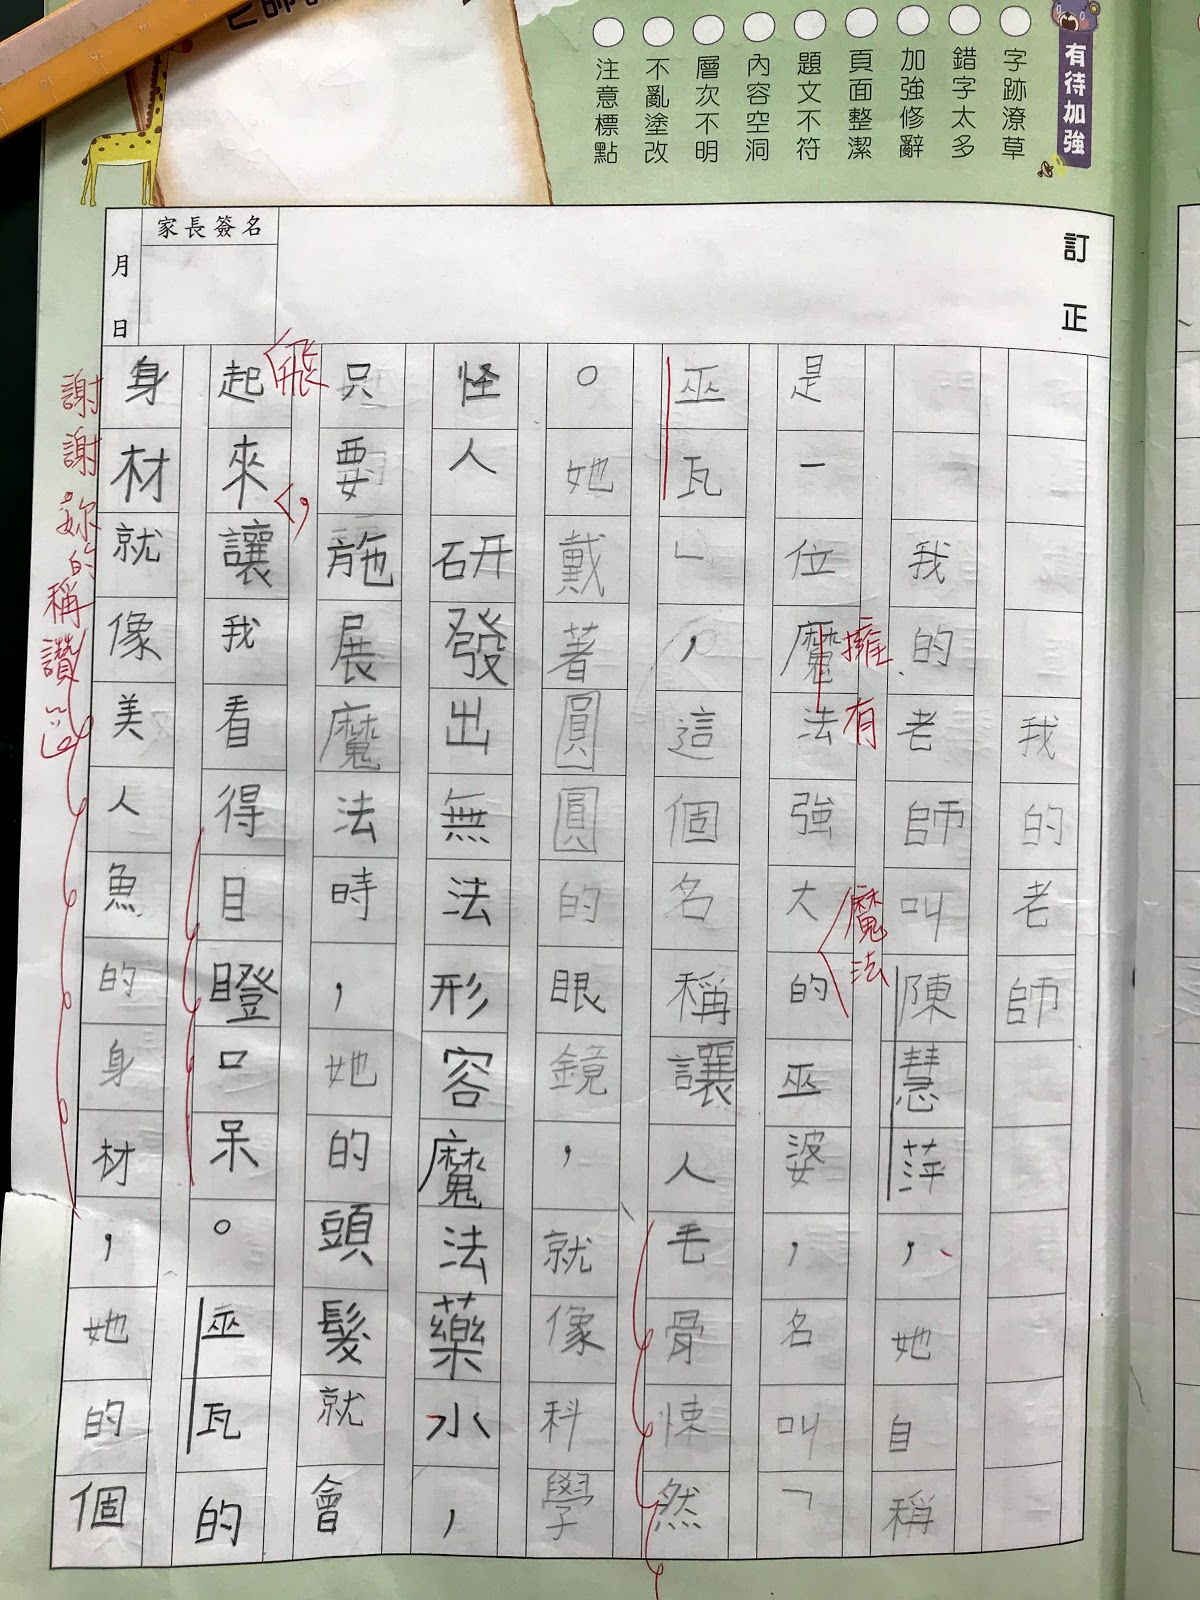 有待加強
字跡潦草
錯字太多
加強修辭
頁面整潔
題文不符
內容空洞
層次不明
不亂塗改
注意標點
訂正
家長簽名
月 日
我的老師
我的老師叫陳慧萍，她自稱
擁有
魔法
是一位魔法強大的巫婆，名叫「
巫瓦」，這個名稱讓人毛骨悚然
。她戴著圓圓的眼鏡，就像科學
怪人研發出無法形容魔法藥水，
只要施展魔法時，她的頭髮就會
飛
，
起來讓我看得目瞪口呆。巫瓦的
身材就像美人魚的身材，她的個
謝謝妳的稱讚